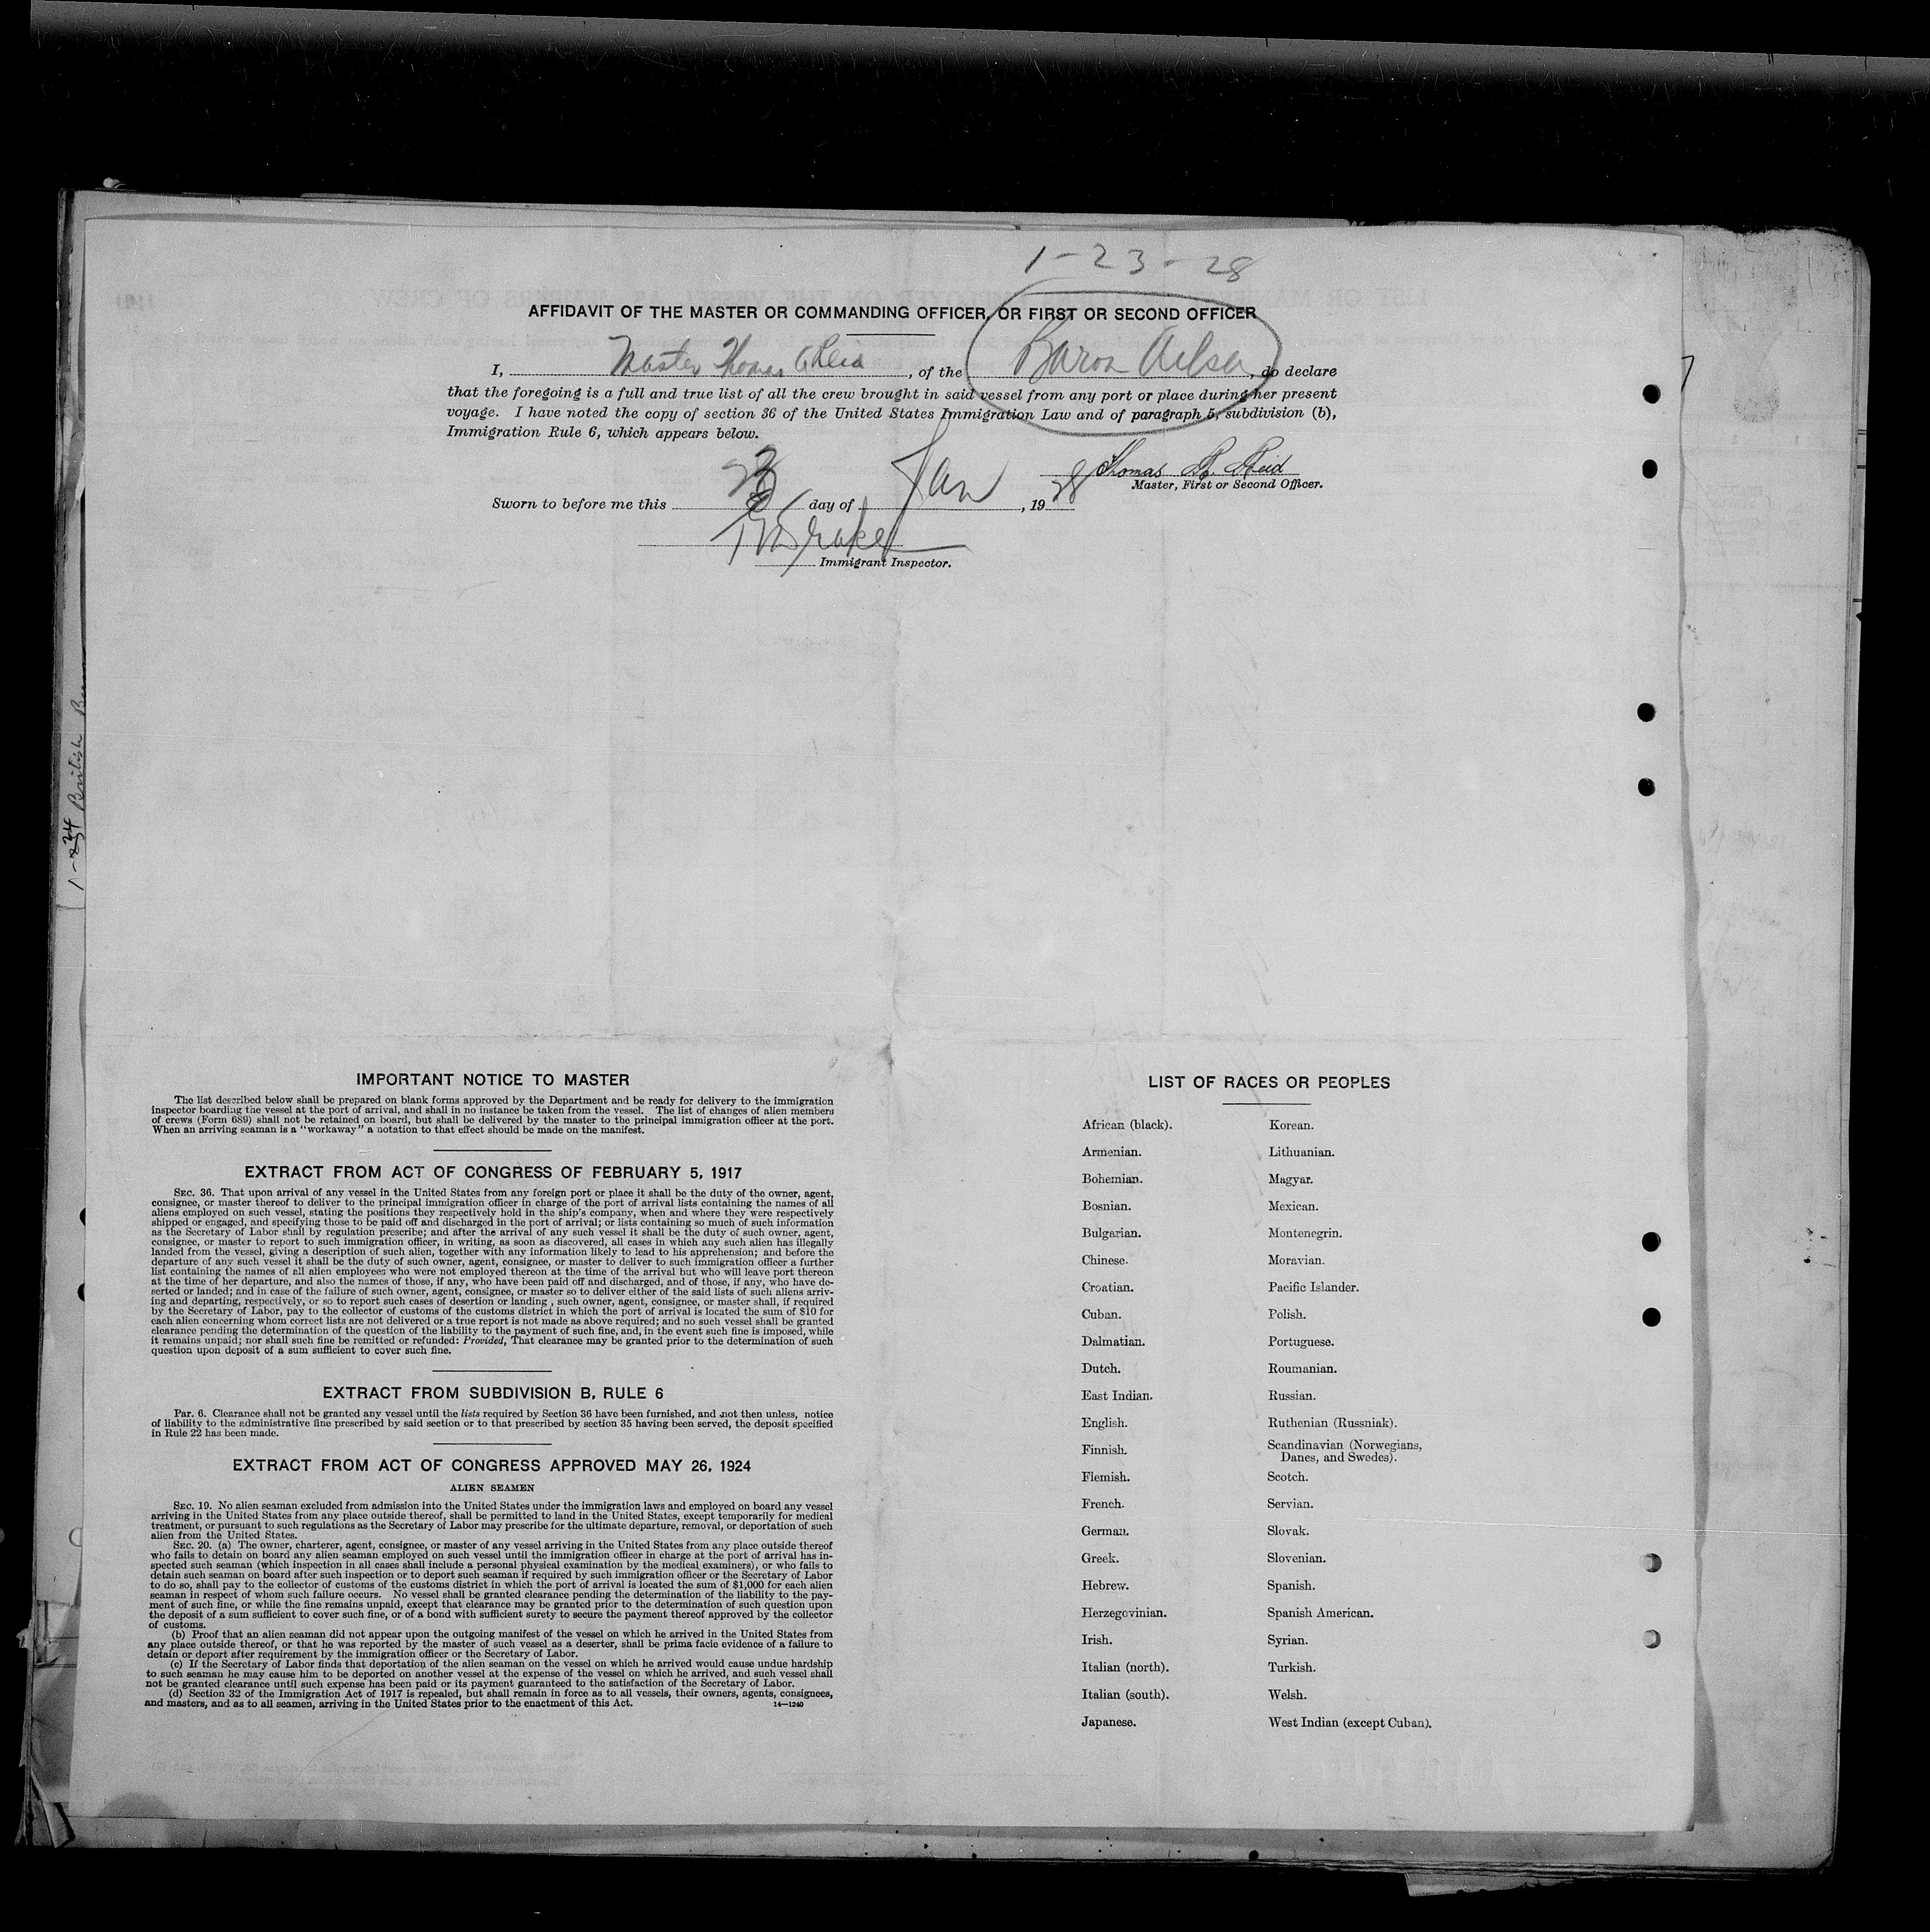 1-23-28
AFFIDAVIT OF THE MASTER OR COMMANDING OFFICER, OR FIRST OR SECOND OFFICER
I, Master Thomas Reid, of the Baron Ailsa, do declare
that the foregoing is a full and true list of all the crew brought in said vessel from any port or place during her present
voyage. I have noted the copy of section 36 of the United States Immigration Law and of paragraph 5, subdivision (b),
Immigration Rule 6, which appears below.
Thomas Reid
Master, First or Second Officer.
Sworn to before me this 23 day of Jan, 1928
Drake
Immigrant Inspector.
1-24 British
IMPORTANT NOTICE TO MASTER
The list described below shall be prepared on blank forms approved by the Department and be ready for delivery to the immigration
inspector boarding the vessel at the port of arrival, and shall in no instance be taken from the vessel. The list of changes of alien members
of crews (Form 689) shall not be retained on board, but shall be delivered by the master to the principal immigration officer at the port.
When an arriving seaman is a "workaway" a notation to that effect should be made on the manifest.
EXTRACT FROM ACT OF CONGRESS OF FEBRUARY 5, 1917
SEC. 36. That upon arrival of any vessel in the United States from any foreign port or place it shall be the duty of the owner, agent,
consignee, or master thereof to deliver to the principal immigration officer in charge of the port of arrival lists containing the names of all
aliens employed on such vessel, stating the positions they respectively hold in the ship's company, when and where they were respectively
shipped or engaged, and specifying those to be paid off and discharged in the port of arrival; or lists containing so much of such information
as the Secretary of Labor shall by regulation prescribe; and after the arrival of any such vessel it shall be the duty of such owner, agent,
consignee, or master to report to such immigration officer, in writing, as soon as discovered, all cases in which any such alien has illegally
landed from the vessel, giving a description of such alien, together with any information likely to lead to his apprehension; and before the
departure of any such vessel it shall be the duty of such owner, agent, consignee, or master to deliver to such immigration officer a further
list containing the names of all alien employees who were not employed thereon at the time of the arrival but who will leave port thereon
at the time of her departure, and also the names of those, if any, who have been paid off and discharged, and of those, if any, who have de-
serted or landed; and in case of the failure of such owner, agent, consignee, or master so to deliver either of the said lists of such aliens arriv-
ing and departing, respectively, or so to report such cases of desertion or landing , such owner, agent, consignee, or master shall, if required
by the Secretary of Labor, pay to the collector of customs of the customs district in which the port of arrival is located the sum of $10 for
each alien concerning whom correct lists are not delivered or a true report is not made as above required; and no such vessel shall be granted
clearance pending the determination of the question of the liability to the payment of such fine, and, in the event such fine is imposed, while
it remains unpaid; nor shall such fine be remitted or refunded: Provided, That clearance may be granted prior to the determination of such
question upon deposit of a sum sufficient to cover such fine.
EXTRACT FROM SUBDIVISION B, RULE 6
Par. 6. Clearance shall not be granted any vessel until the lists required by Section 36 have been furnished, and not then unless, notice
of liability to the administrative fine prescribed by said section or to that prescribed by section 35 having been served, the deposit specified
in Rule 22 has been made.
EXTRACT FROM ACT OF CONGRESS APPROVED MAY 26, 1924
ALIEN SEAMEN
SEC. 19. No alien seaman excluded from admission into the United States under the immigration laws and employed on board any vessel
arriving in the United States from any place outside thereof, shall be permitted to land in the United States, except temporarily for medical
treatment, or pursuant to such regulations as the Secretary of Labor may prescribe for the ultimate departure, removal, or deportation of such
alien from the United States.
SEC. 20. (a) The owner, charterer, agent, consignee, or master of any vessel arriving in the United States from any place outside thereof
who fails to detain on board any alien seaman employed on such vessel until the immigration officer in charge at the port of arrival has in-
spected such seaman (which inspection in all cases shall include a personal physical examination by the medical examiners), or who fails to
detain such seaman on board after such inspection or to deport such seaman if required by such immigration officer or the Secretary of Labor
to do so, shall pay to the collector of customs of the customs district in which the port of arrival is located the sum of $1,000 for each alien
seaman in respect of whom such failure occurs. No vessel shall be granted clearance pending the determination of the liability to the pay-
ment of such fine, or while the fine remains unpaid, except that clearance may be granted prior to the determination of such question upon
the deposit of a sum sufficient to cover such fine, or of a bond with sufficient surety to secure the payment thereof approved by the collector
of customs.
(b) Proof that an alien seaman did not appear upon the outgoing manifest of the vessel on which he arrived in the United States from
any place outside thereof, or that he was reported by the master of such vessel as a deserter, shall be prima facie evidence of a failure to
detain or deport after requirement by the immigration officer or the Secretary of Labor.
(c) If the Secretary of Labor finds that deportation of the alien seaman on the vessel on which he arrived would cause undue hardship
to such seaman he may cause him to be deported on another vessel at the expense of the vessel on which he arrived, and such vessel shall
not be granted clearance until such expense has been paid or its payment guaranteed to the satisfaction of the Secretary of Labor.
(d) Section 32 of the Immigration Act of 1917 is repealed, but shall remain in force as to all vessels, their owners, agents, consignees,
and masters, and as to all seamen, arriving in the United States prior to the enactment of this Act. 14—1240
LIST OF RACES OR PEOPLES
African (black).
Armenian.
Bohemian.
Bosnian.
Bulgarian.
Chinese.
Croatian.
Cuban.
Dalmatian.
Dutch.
East Indian.
English.
Finnish.
Flemish.
French.
German.
Greek.
Hebrew.
Herzegovinian.
Irish.
Italian (north).
Italian (south).
Japanese.
Korean.
Lithuanian.
Magyar.
Mexican.
Montenegrin.
Moravian.
Pacific Islander.
Polish.
Portuguese.
Roumanian.
Russian.
Ruthenian (Russniak).
Scandinavian (Norwegians,
Danes, and Swedes).
Scotch.
Servian.
Slovak.
Slovenian.
Spanish.
Spanish American.
Syrian.
Turkish.
Welsh.
West Indian (except Cuban).